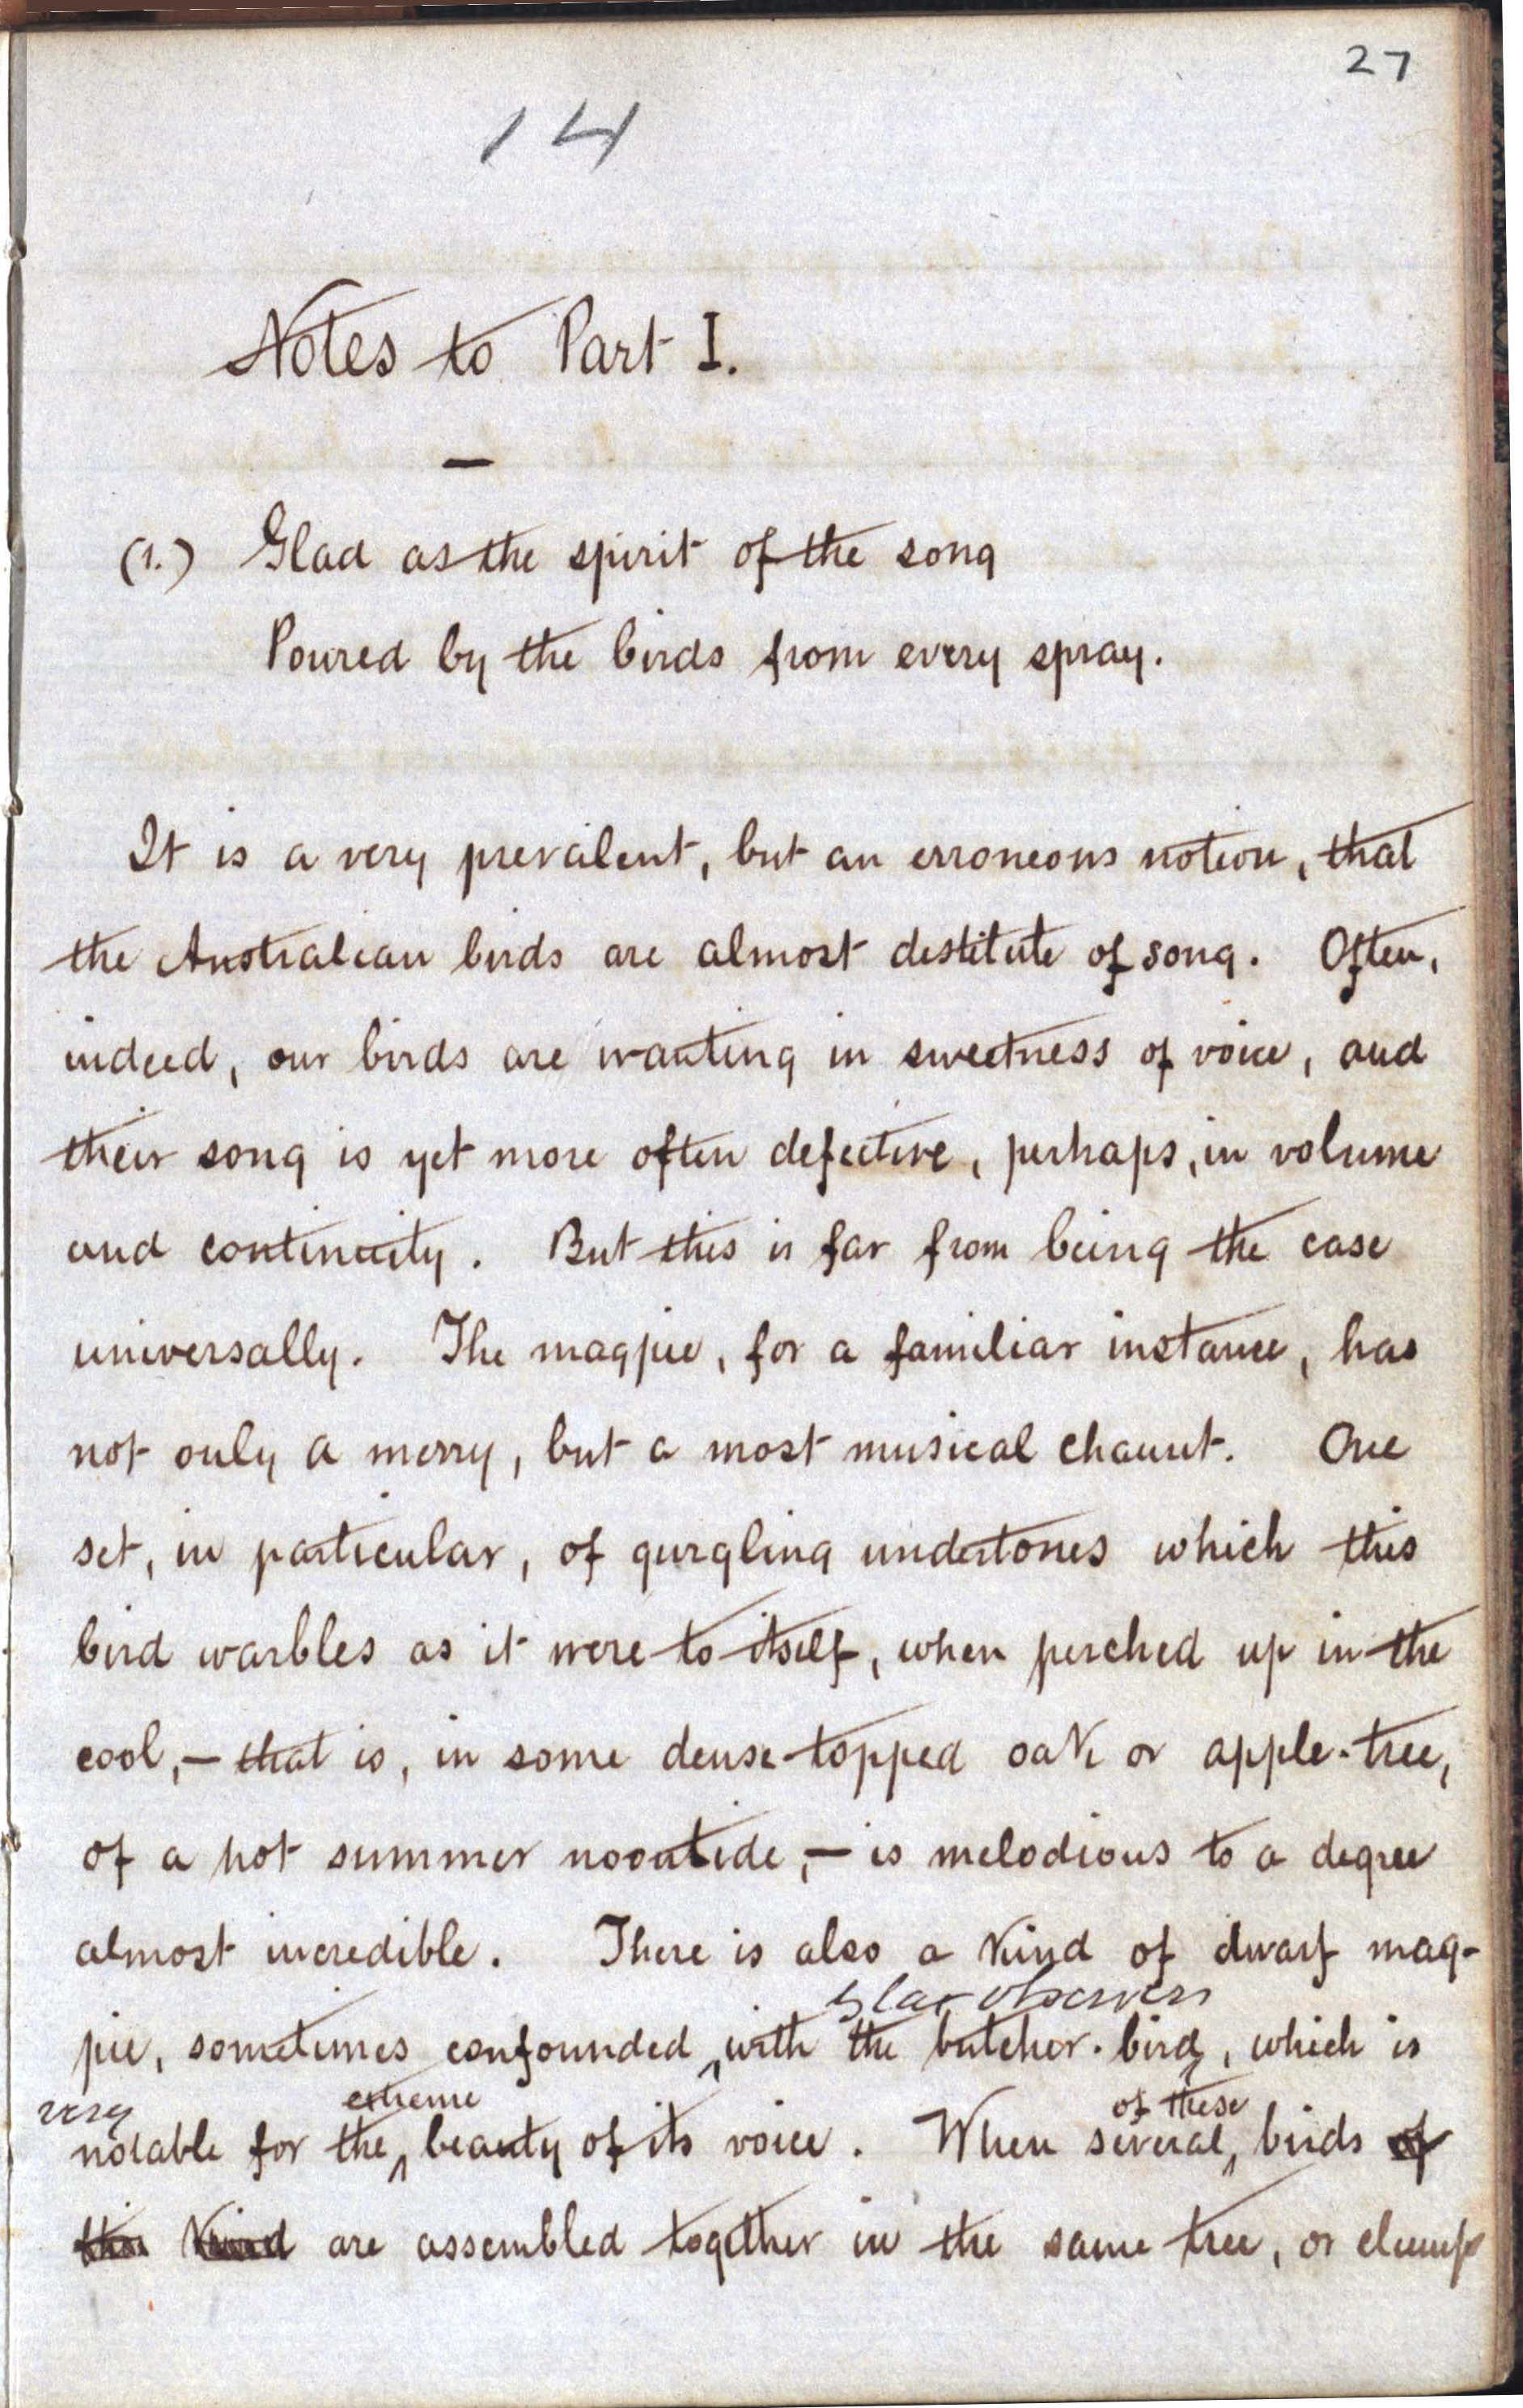 27
14
Notes to Part I.
(1.) Glad as the spirit of the song
Poured by the birds from every spray.
It is a very prevalent, but an erroneous notion, that
the Australian birds are almost destitute of song. Often,
indeed, our birds are wanting in sweetness of voice, and
their song is yet more often defective, perhaps, in volume
and continuity. But this is far from being the case
universally. The magpie, for a familiar instance, has
not only a merry, but a most musical chaunt. One
set, in particular, of gurgling undertones which this
bird warbles as it were to itself, when perched up in the
cool, — that is, in some dense-topped oak or apple-tree,
of a hot summer noontide, — is melodious to a degree
almost incredible. There is also a kind of dwarf mag-
by lax observers
pie, sometimes confounded with the butcher-bird, which is
very extreme of these
notable for the beauty of its voice. When several birds of
this kind are assembled together in the same tree, or clump